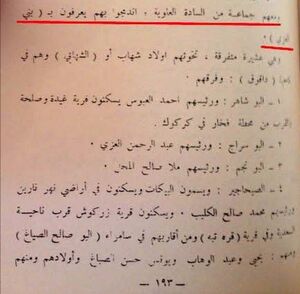 ومنهم جماعة من السادة العلوية ، اندمجوا بهم يعرفون بـ ( بني
العزي ) .
وهي عشيرة متفرقة ، نخوتهم اولاد شهاب أو ( الشهابي ) وهم في
( داقوق ) : وفرقهم
١ - البو شاهر : ورئيسهم احمد العبوس يسكنون قرية غيدة وصلحة
القرب من محطة فخار في كركوك .
٢ - البو سراج : ورئيسهم عبد الرحمن العزي .
٣ - البو نجم : ورئيسهم ملا صالح المحل .
٤ - الصبحاجير : ويسمون البركات ويسكنون في أراضي نهر فارين
ورئيسهم محمد صالح الكليب . ويسكنون قرية زركوش قرب ناحيسة
السعدية وفي قرية ( قره تبه ) ومن أقاربهم في سامراء ( البو صالح الصياغ )
ومنهم : يحيى وعبد الوهاب ويونس حسن الصياغ وأولادهم ومنهم
— ١٩٣ —